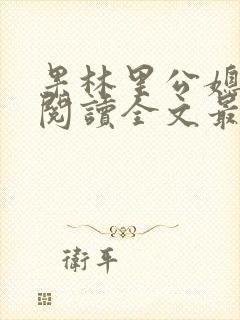 果林里公媳
閱讀全文最
衛平